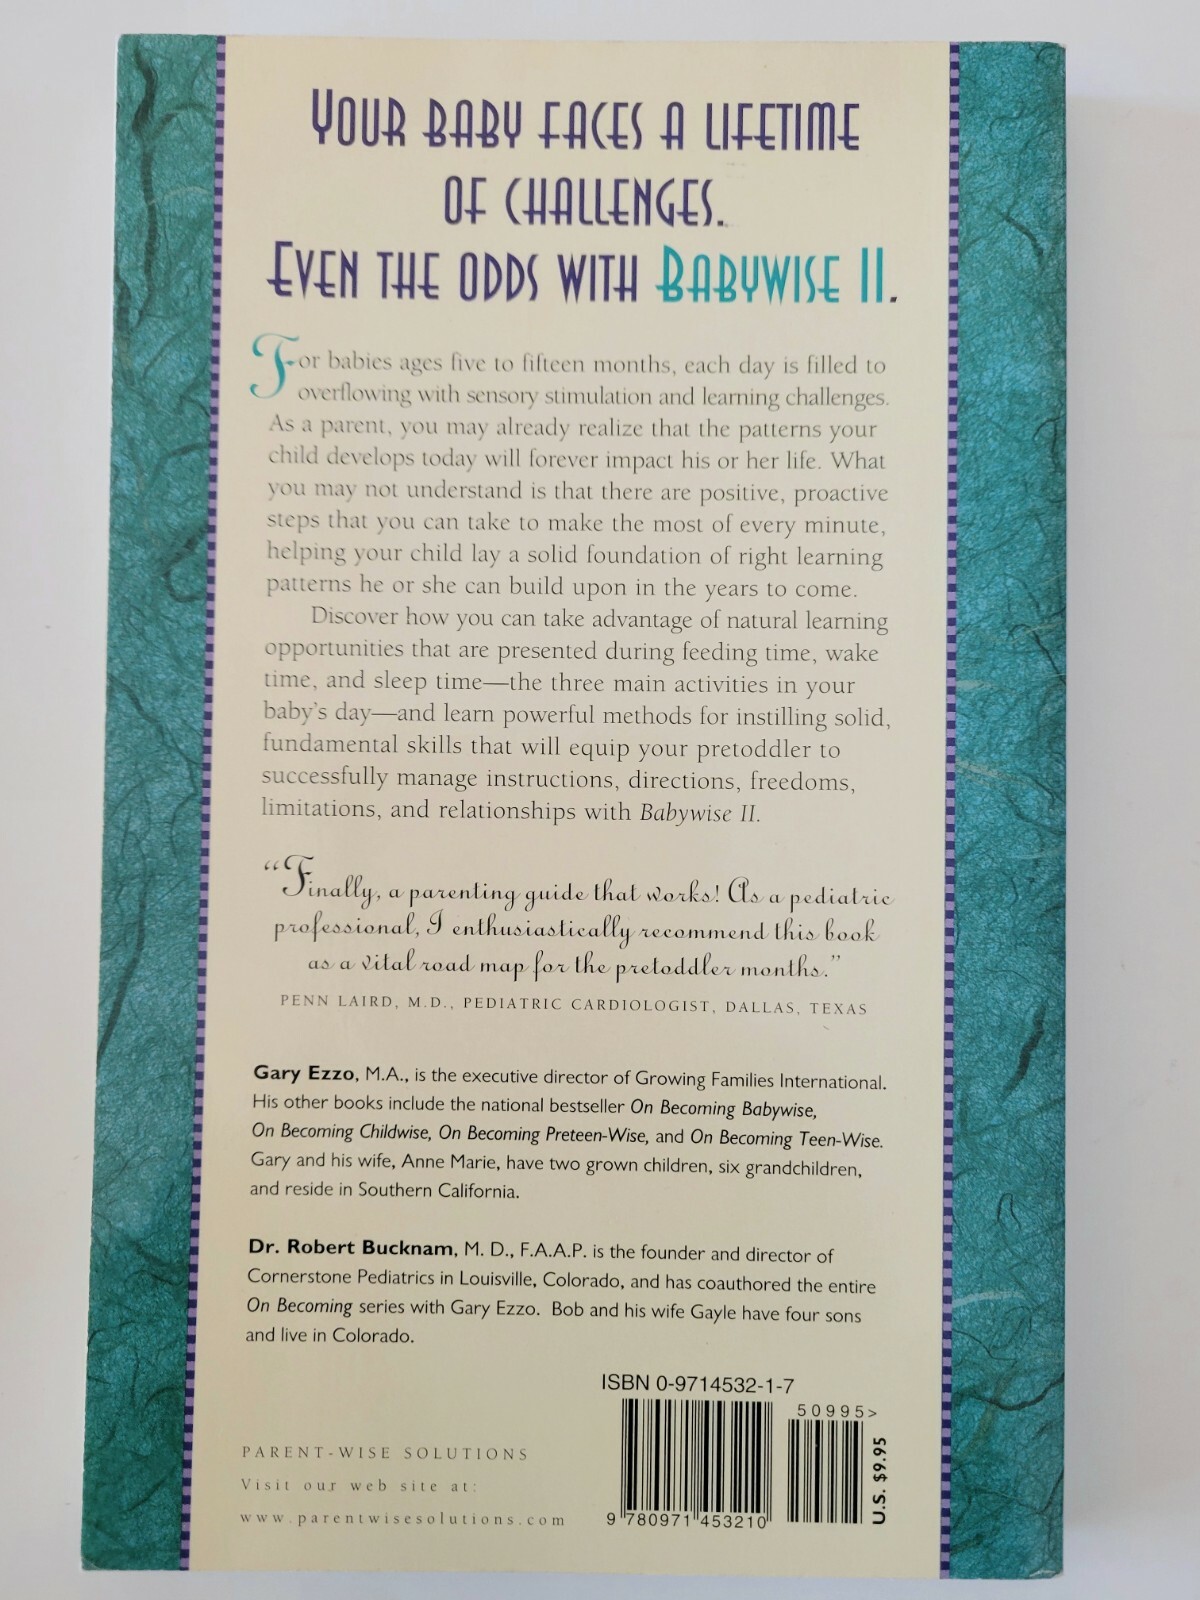 YOUR BABY FACES A LIFETIME
OF CHALLENGES.
EVEN THE ODDS WITH BABYWISE II.
For babies ages five to fifteen months, each day is filled to
overflowing with sensory stimulation and learning challenges.
As a parent, you may already realize that the patterns your
child develops today will forever impact his or her life. What
you may not understand is that there are positive, proactive
steps that you can take to make the most of every minute,
helping your child lay a solid foundation of right learning
patterns he or she can build upon in the years to come.
Discover how you can take advantage of natural learning
opportunities that are presented during feeding time, wake
time, and sleep time—the three main activities in your
baby's day—and learn powerful methods for instilling solid,
fundamental skills that will equip your pretoddler to
successfully manage instructions, directions, freedoms,
limitations, and relationships with Babywise II.
"Finally, a parenting guide that works! As a pediatric
professional, I enthusiastically recommend this book
as a vital road map for the pretoddler months."
PENN LAIRD, M.D., PEDIATRIC CARDIOLOGIST, DALLAS, TEXAS
Gary Ezzo, M.A., is the executive director of Growing Families International.
His other books include the national bestseller On Becoming Babywise,
On Becoming Childwise, On Becoming Preteen-Wise, and On Becoming Teen-Wise.
Gary and his wife, Anne Marie, have two grown children, six grandchildren,
and reside in Southern California.
Dr. Robert Bucknam, M. D., F.A.A.P. is the founder and director of
Cornerstone Pediatrics in Louisville, Colorado, and has coauthored the entire
On Becoming series with Gary Ezzo. Bob and his wife Gayle have four sons
and live in Colorado.
ISBN 0-9714532-1-7
50995>
U.S. $9.95
9 780971 453210
PARENT-WISE SOLUTIONS
Visit our web site at:
www.parentwisesolutions.com